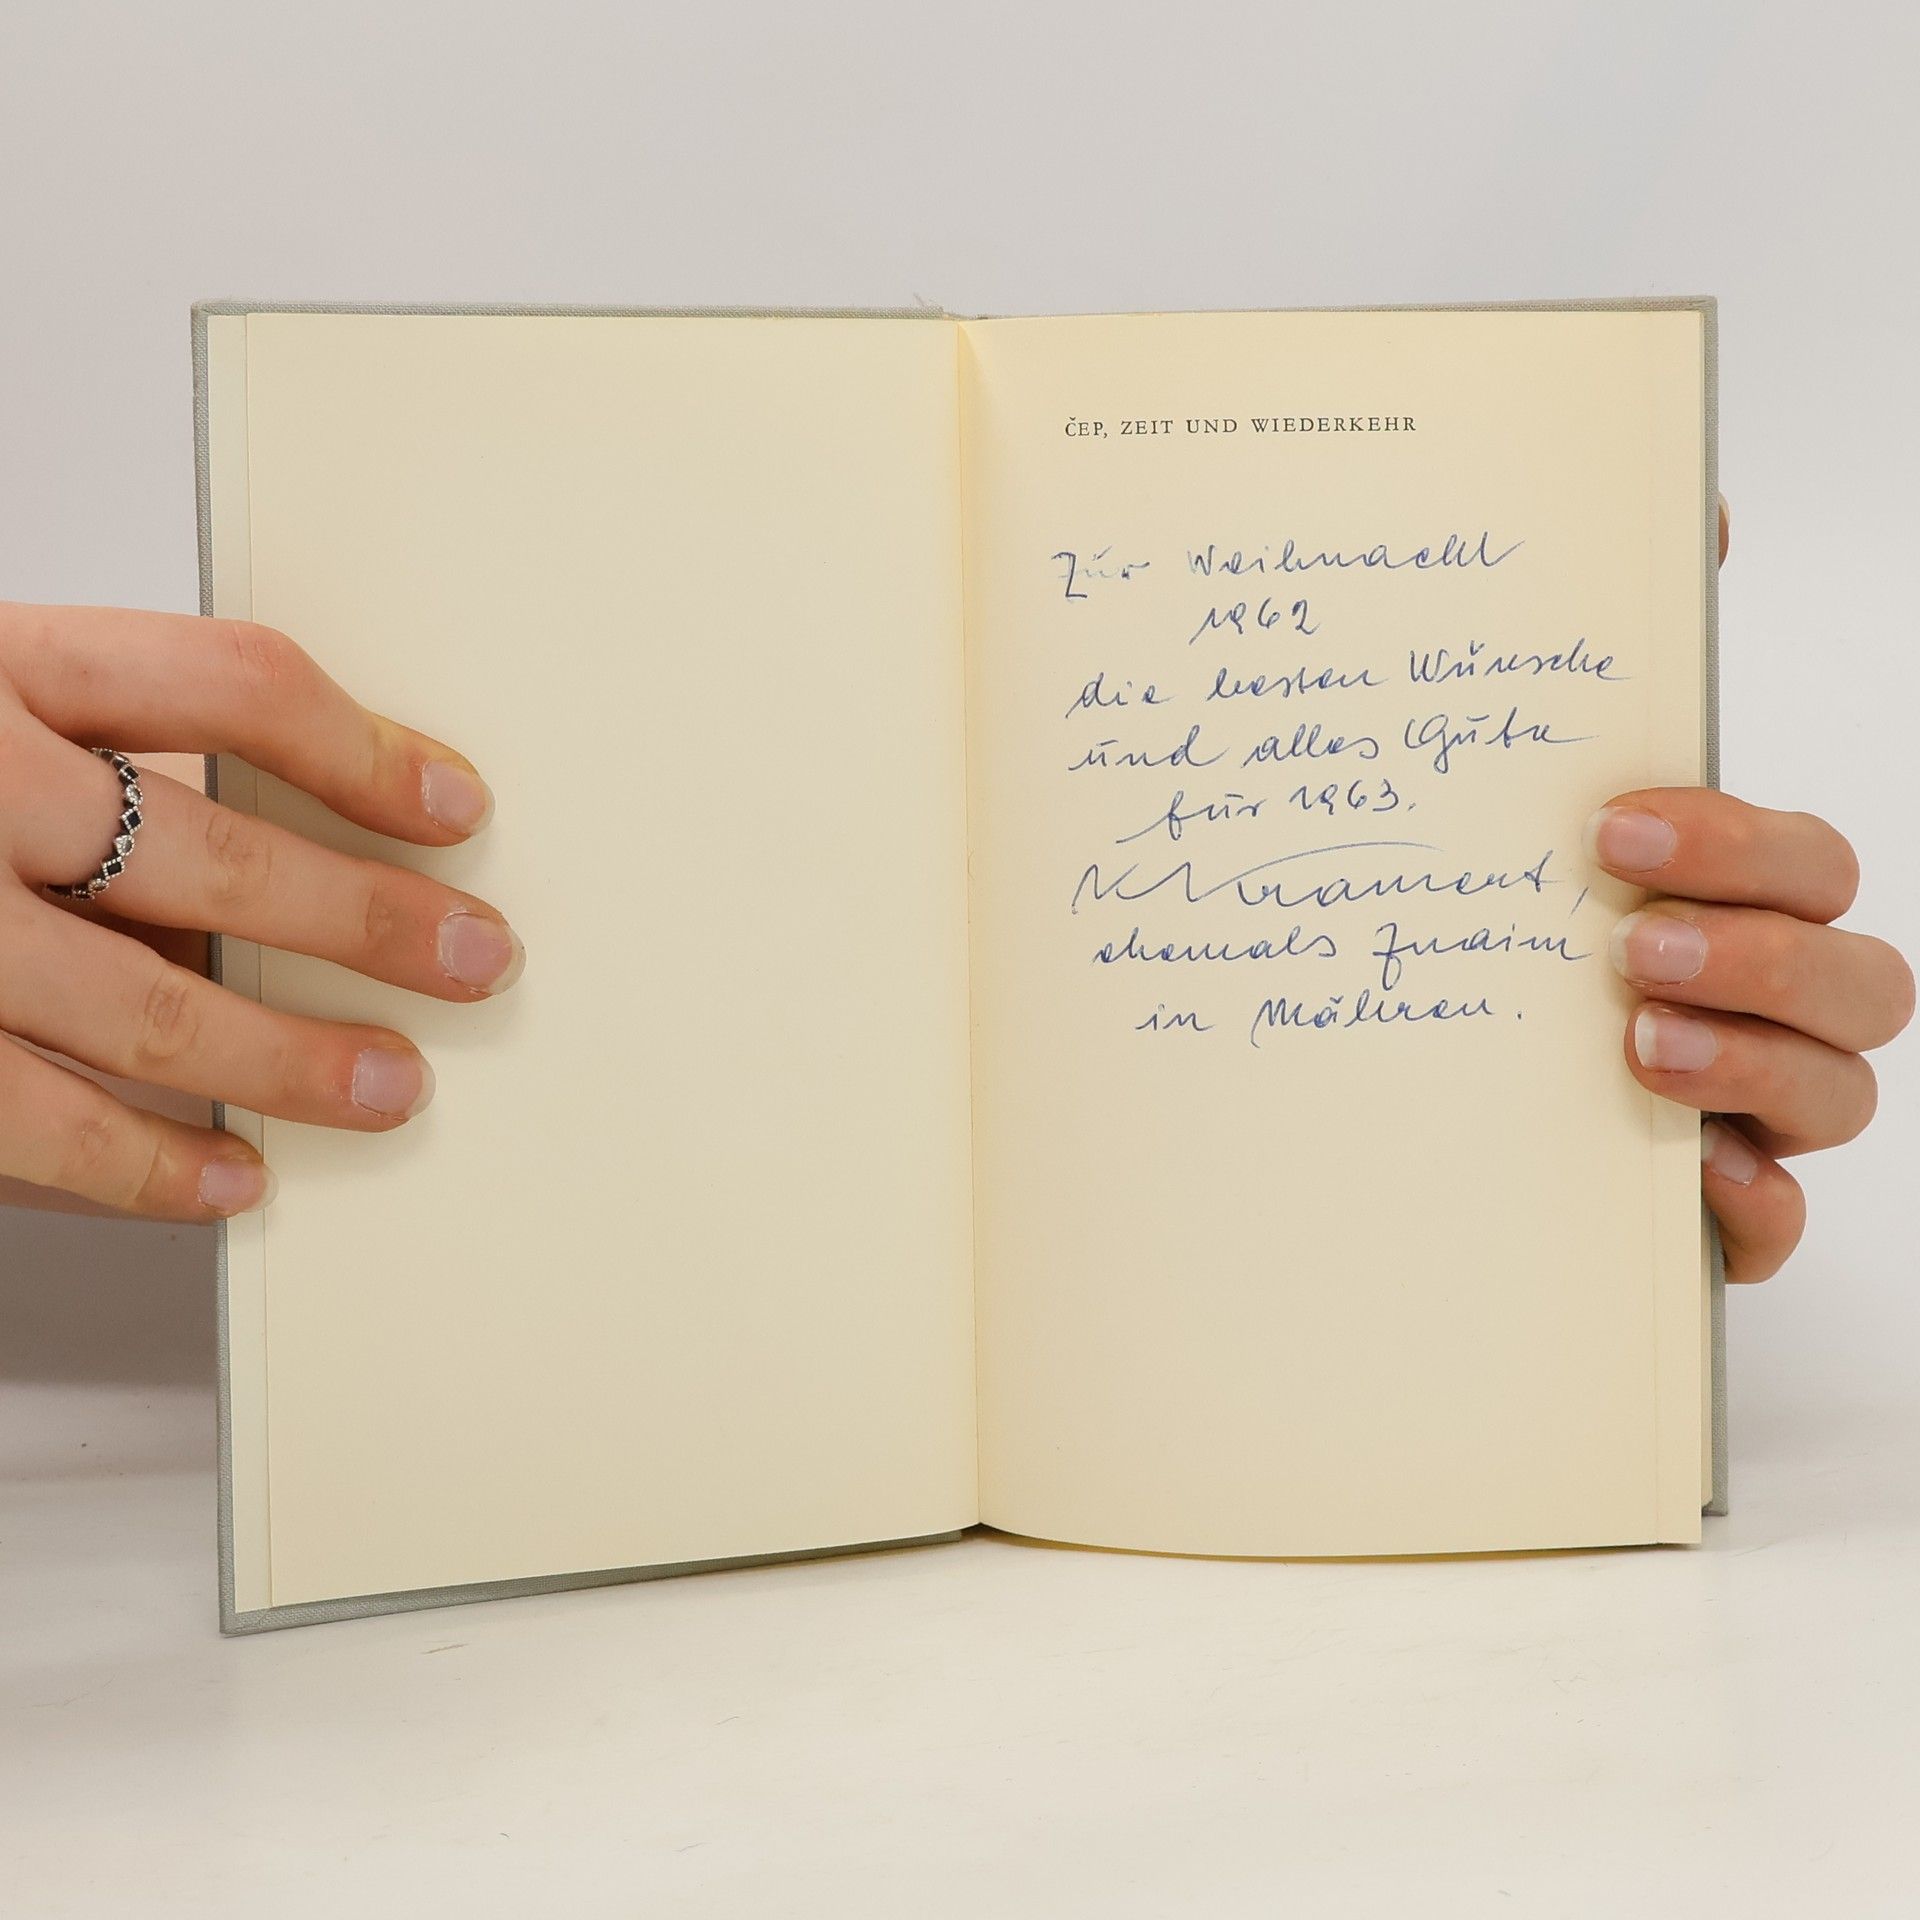 ČEP, ZEIT UND WIEDERKEHR
Zur Weihnacht
1962
die besten Wünsche
und alles Gute
für 1963.
ehemals Znaim
in Mähren.